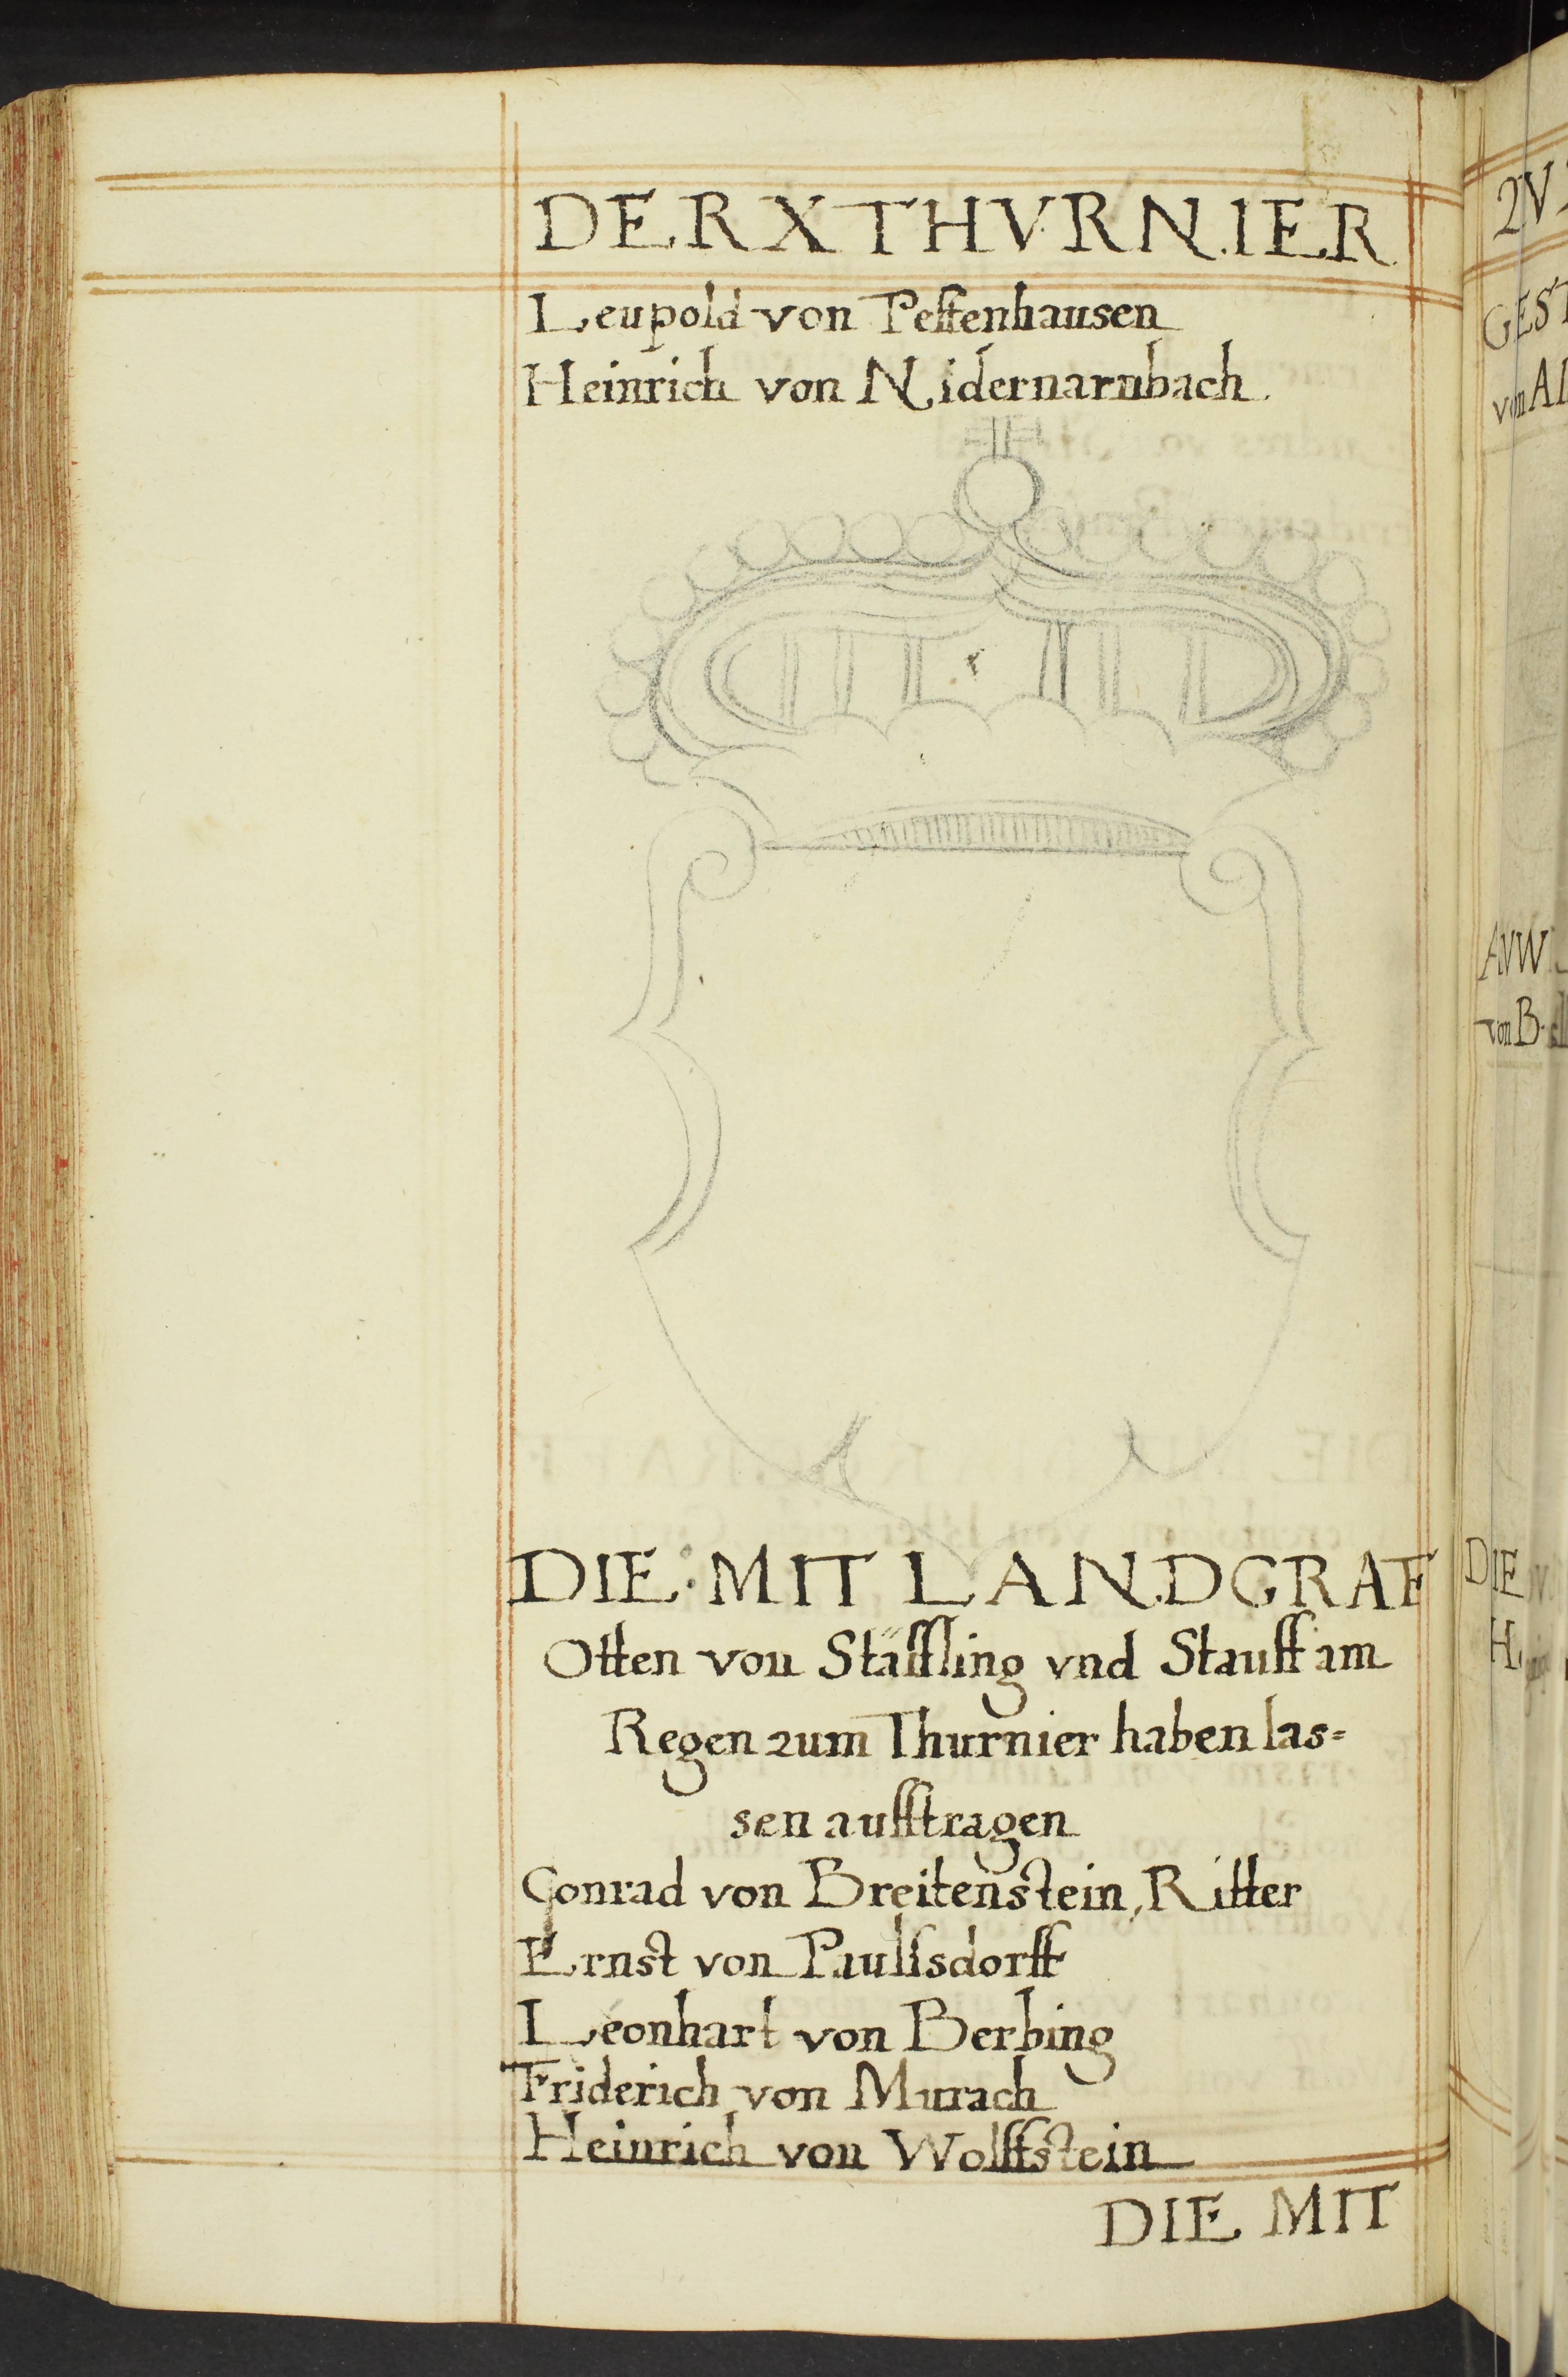 DER X THVRNIER
Leupold von Peffenhausen
Heinrich von Nidernarnbach.
DIE MIT LANDGRAF
Otten von Stäffling vnd Stauff am
Regen zum Thurnier haben las=
sen aufftragen
Conrad von Breitenstein, Ritter
Ernst von Paulsdorff
Leonhart von Berbing
Friderich von Murach
Heinrich von Wolffstein
DIE MIT
von
von
DIE